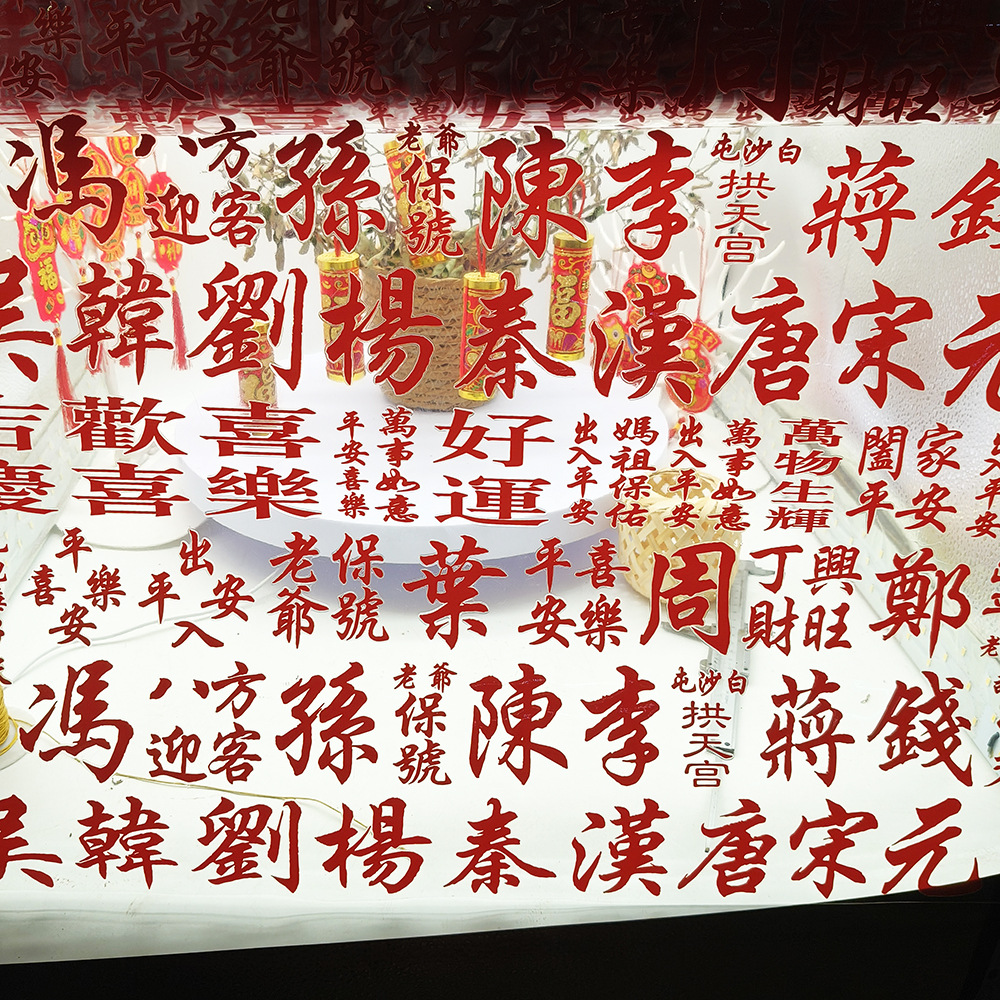 馮 八方迎客 孫 老爺保號 陳 李 白沙屯拱天宮 蔣 錢
吴 韓 劉 楊 秦 漢 唐 宋 元
歡喜 喜樂 平安喜樂 萬事如意 好運 出入平安 媽祖保佑 出入平安 萬事如意 萬物生輝 闔家平安
平安喜樂 出入平安 老爺保號 葉 平安喜樂 周 丁財興旺 鄭
馮 八方迎客 孫 老爺保號 陳 李 白沙屯拱天宮 蔣 錢
吴 韓 劉 楊 秦 漢 唐 宋 元